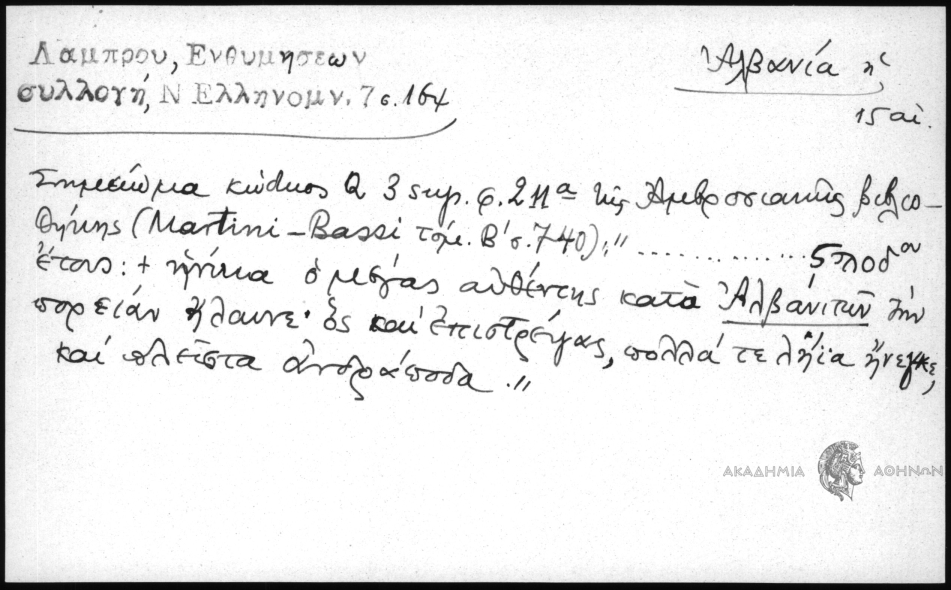 Λαμπρου, Ενθυμησεων
συλλογή, Ν Ελληνομν. 7 σ. 164
Ἀλβανία ἡ
15 αἰ.
Σημείωμα κώδικος Q 3 sup. φ. 211α τῆς Ἀμβροσιανῆς βιβλιο-
θήκης (Martini-Bassi τόμ. Β' σ. 740): " ................
ἔτους: + ἡνίκα ὁ μέγας αὐθέντης κατὰ Ἀλβανιτῶν τὴν
πορείαν ἤλαυνε· ὃς καὶ ἐπιστρέψας, πολλά τε λήϊα ἤνεγκε,
καὶ πλεῖστα ἀνδράποδα."
ΑΚΑΔΗΜΙΑ ΑΘΗΝΩΝ